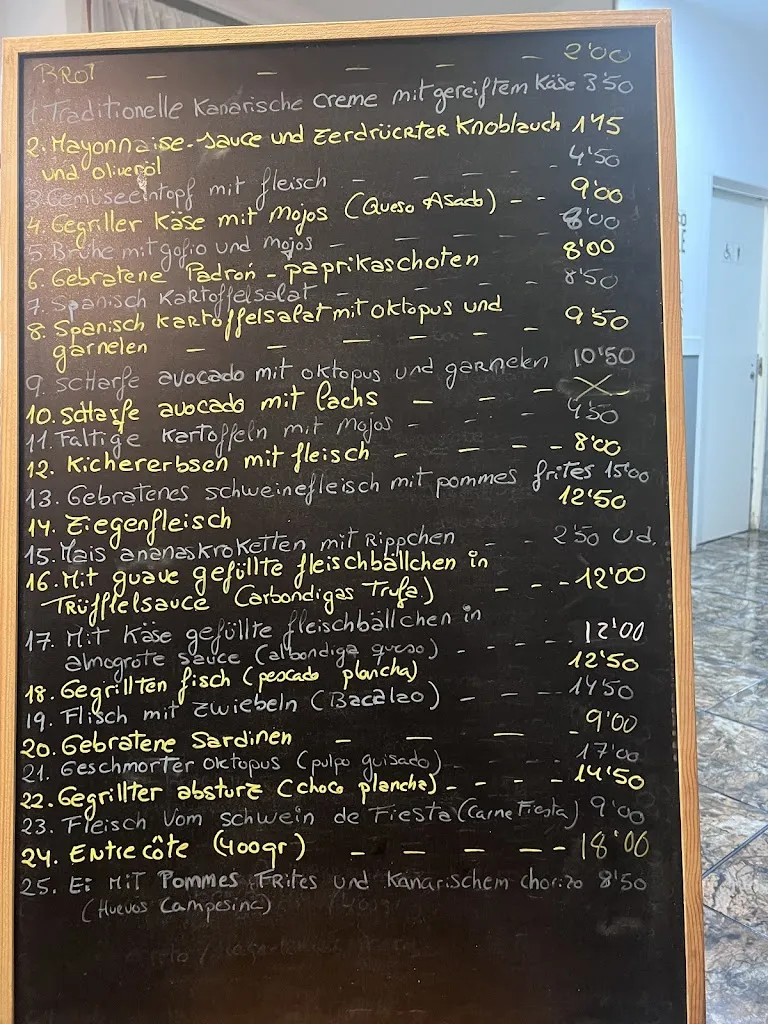 BROT — — — — 2'00
1. Traditionelle Kanarische creme mit gereiftem Käse 3'50
2. Mayonnaise-sauce und zerdrückter Knoblauch 1'45
und olivenöl
3. Gemüseeintopf mit fleisch — — — — 4'50
4. Gegriller Käse mit Mojos (Queso Asado) - - 9'00
5. Brühe mit gofio und mojos — — — — 8'00
6. Gebratene Padron - paprikaschoten 8'00
7. Spanisch Kartoffelsalat — — — — 8'50
8. Spanisch Kartoffelsalat mit oktopus und
garnelen — — — — — 9'50
9. scharfe avocado mit oktopus und garnelen 10'50
10. scharfe avocado mit lachs — — — — X
11. Faltige Kartoffeln mit Mojos - — — — 4'50
12. Kichererbsen mit fleisch — - — - 8'00
13. Gebratenes schweinefleisch mit pommes frites 15'00
14. Ziegenfleisch 12'50
15. Mais ananaskroketten mit Rippchen — - — 2'50 Ud.
16. Mit guave gefüllte fleischbällchen in
Trüfflelsauce (arbondigas Trufa) - - - - 12'00
17. Mit Käse gefüllte fleischbällchen in
almogrote sauce (albondiga queso) - - - - 12'00
18. Gegrillten fisch (pescado plancha) 12'50
19. Flisch mit zwiebeln (Bacalao) — — - - 14'50
20. Gebratene Sardinen — — — - 9'00
21. Geschmorter oktopus (pulpo guisado) - — — 17'00
22. Gegrillter absturz (choco plancha) - - - - 14'50
23. Fleisch vom schwein de Fiesta (Carne Fiesta) 9'00
24. Entrecôte (400gr) — — — - - 18'00
25. Ei MiT Pommes Frites und Kanarischem chorizo 8'50
(Huevos Campesina)